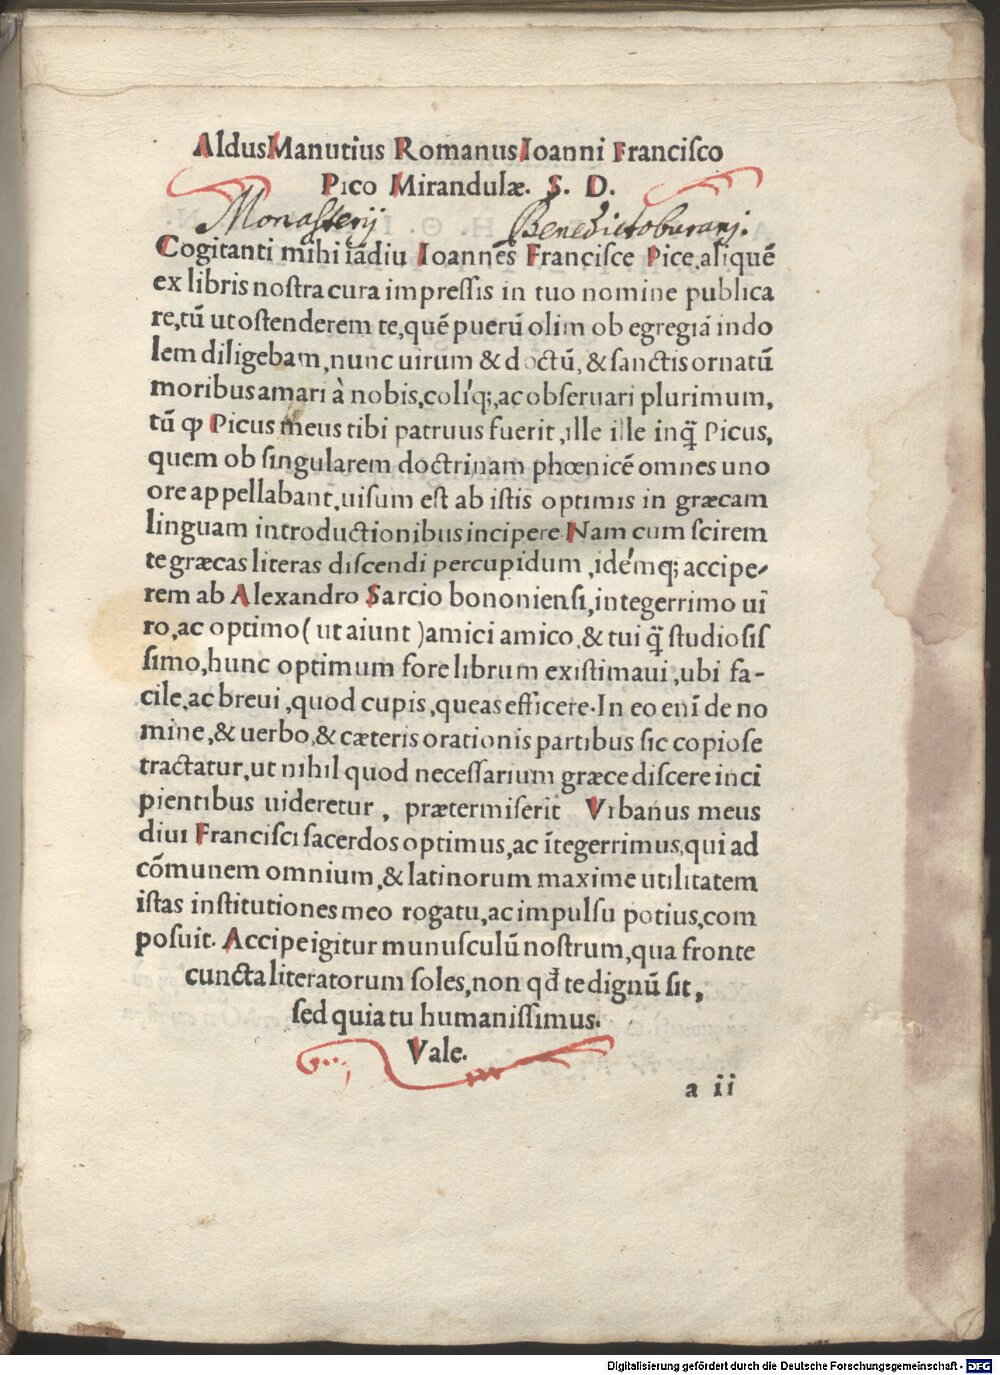 Aldus Manutius Romanus Ioanni Franciſco
Pico Mirandulæ. S. D.
Monasterij Benedictoburanj.
Cogitanti mihi iādiu Ioannes Franciſce Pice, aliquē
ex libris noſtra cura impreſſis in tuo nomine publica
re, tū ut oſtenderem te, quē puerū olim ob egregiā indo
lem diligebam, nunc uirum & doctū, & ſanctis ornatū
moribus amari à nobis, colíq;, ac obſeruari plurimum,
tū ꝙ Picus meus tibi patruus fuerit, ille ille inq̄ Picus,
quem ob ſingularem doctrinam phœnicē omnes uno
ore appellabant, uiſum eſt ab iſtis optimis in græcam
linguam introductionibus incipere. Nam cum ſcirem
te græcas literas diſcendi percupidum, idémq; accipe-
rem ab Alexandro Sarcio bononienſi, integerrimo ui
ro, ac optimo (ut aiunt) amici amico, & tui q̄ ſtudioſiſ
ſimo, hunc optimum fore librum exiſtimaui, ubi fa-
cile, ac breui, quod cupis, queas efficere. In eo enī de no
mine, & uerbo, & cæteris orationis partibus ſic copioſe
tractatur, ut nihil quod neceſſarium græce diſcere inci
pientibus uideretur, prætermiſerit Vrbanus meus
diui Franciſci ſacerdos optimus, ac īntegerrimus, qui ad
cōmunem omnium, & latinorum maxime utilitatem
iſtas inſtitutiones meo rogatu, ac impulſu potius, com
poſuit. Accipe igitur munuſculū noſtrum, qua fronte
cuncta literatorum ſoles, non qđ te dignū ſit,
ſed quia tu humaniſſimus.
Vale.
a ii
Digitalisierung gefördert durch die Deutsche Forschungsgemeinschaft - DFG